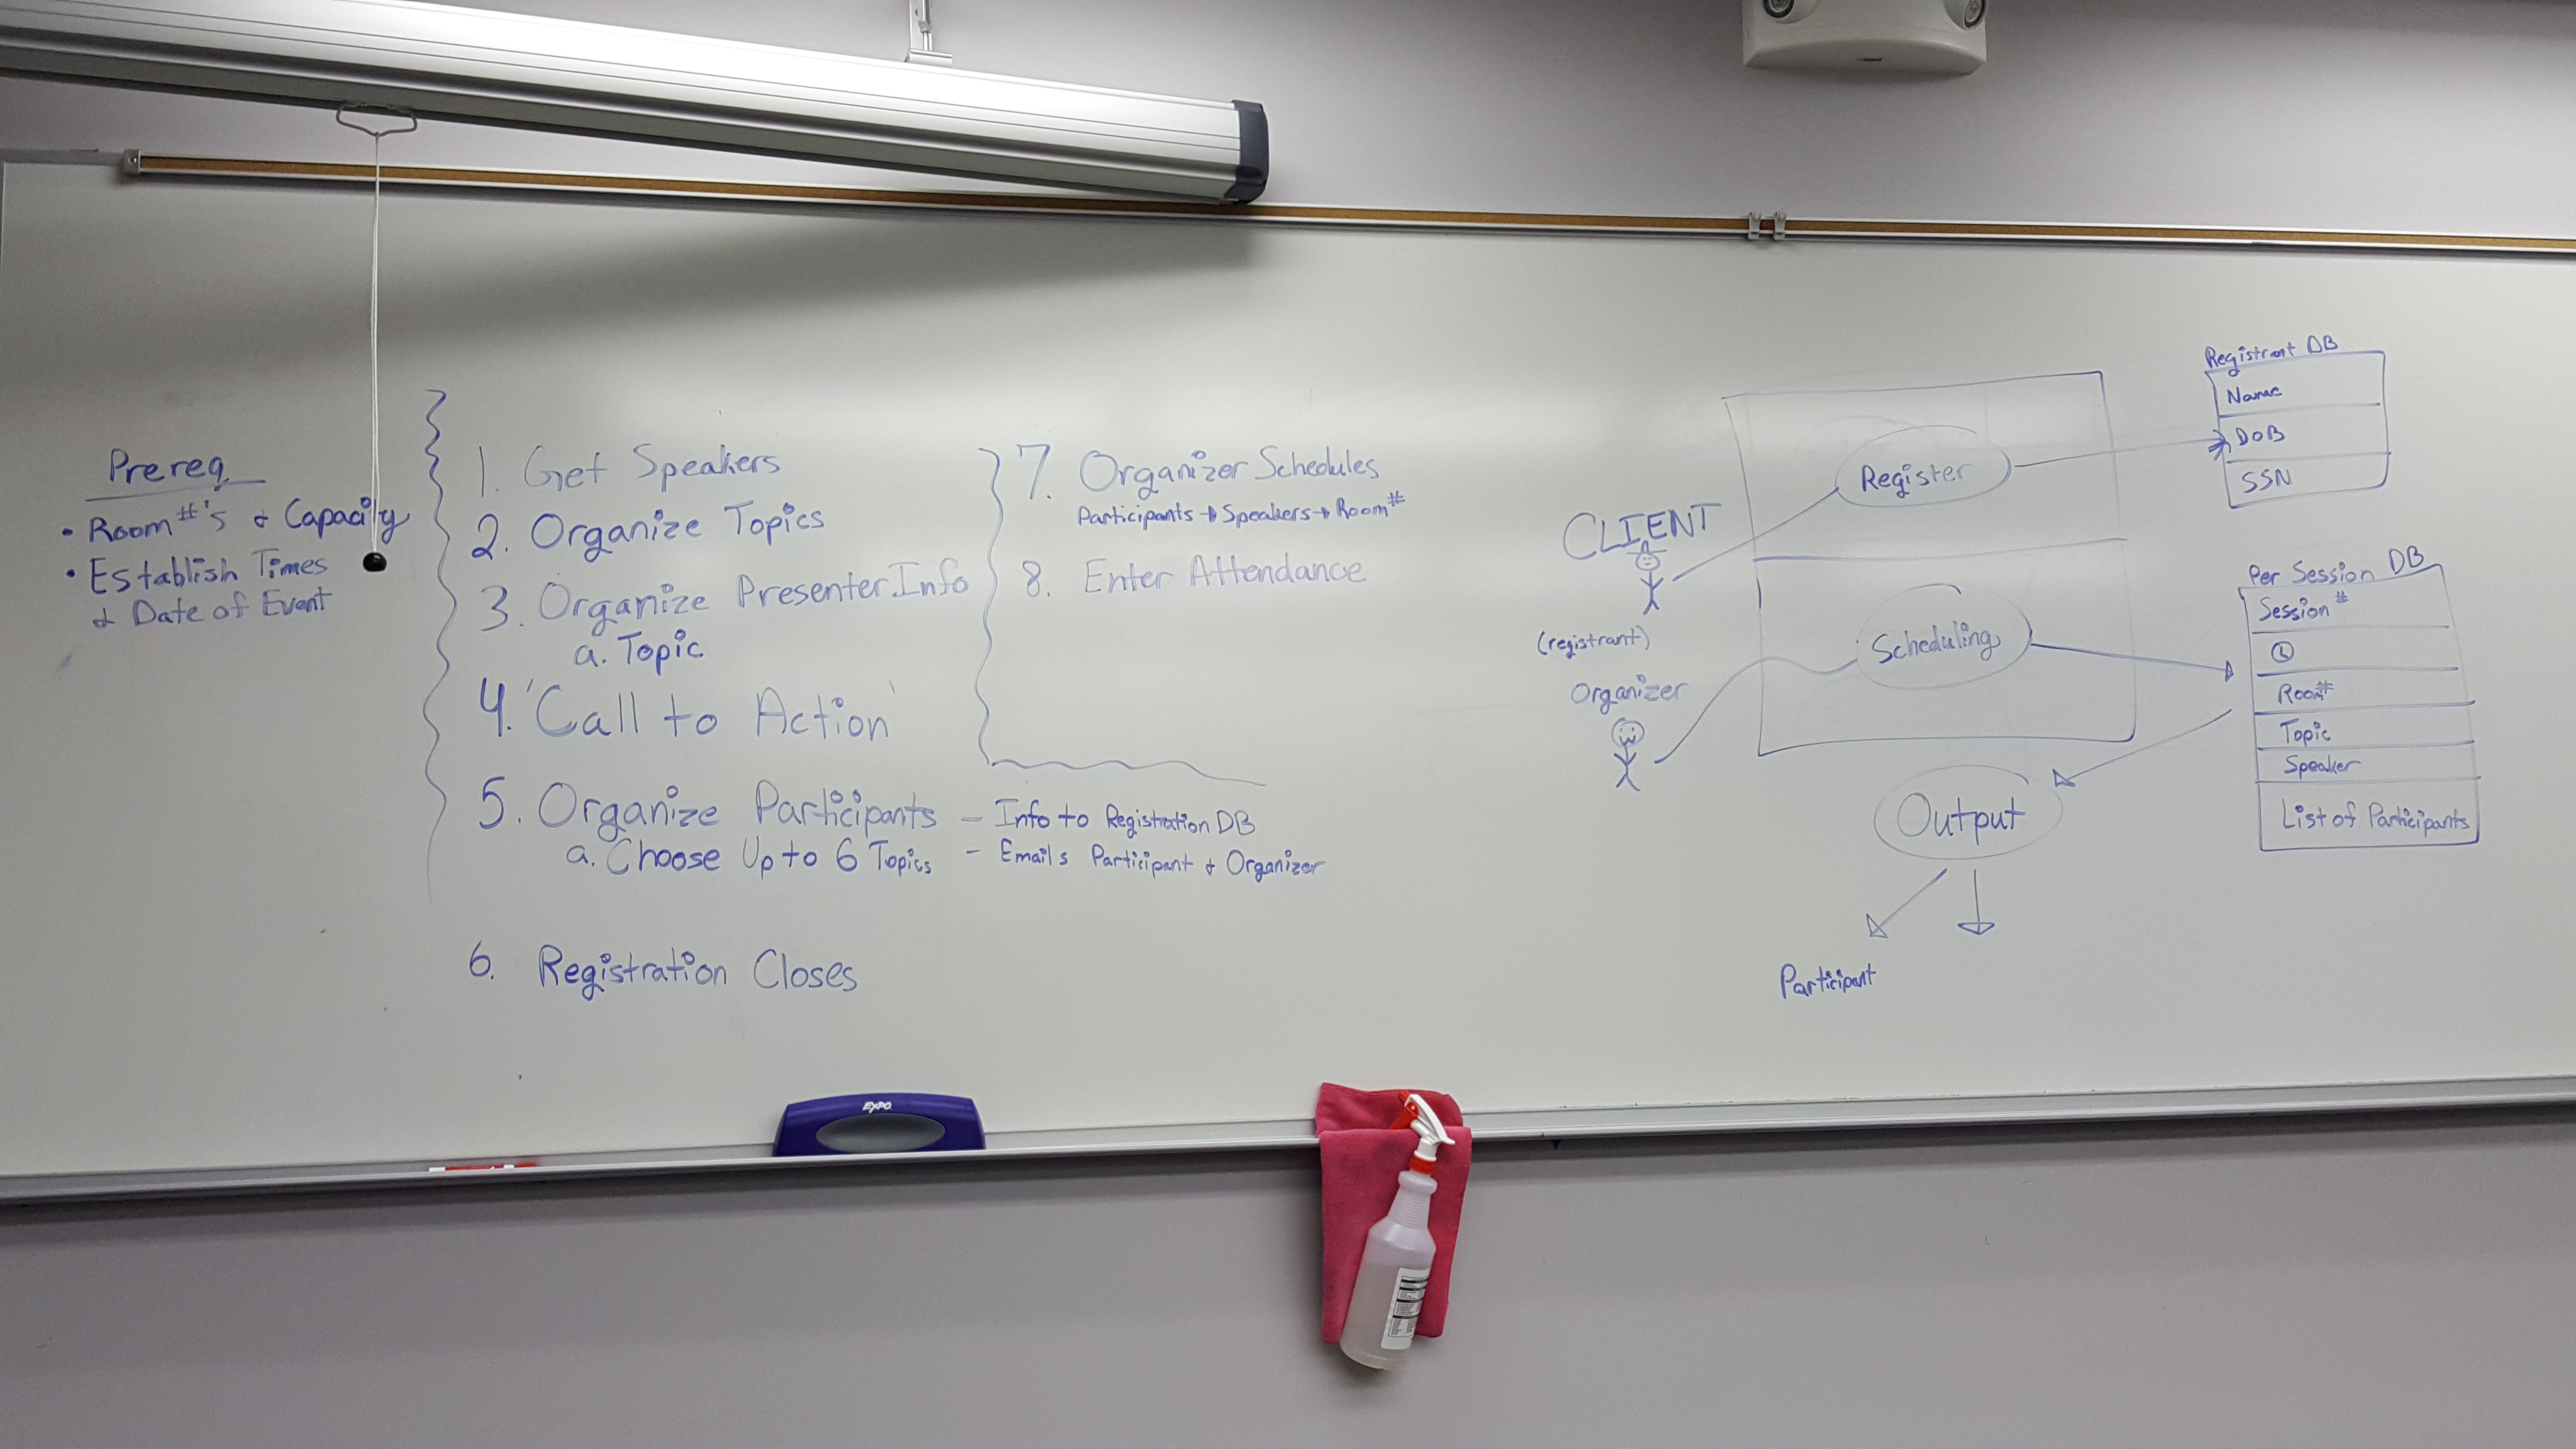 Prereq
• Room #'s & Capacity
• Establish Times
& Date of Event
1. Get Speakers
2. Organize Topics
3. Organize Presenter Info
a. Topic
4. 'Call to Action'
5. Organize Participants - Info to Registration DB
a. Choose Up to 6 Topics - Emails Participant & Organizer
6. Registration Closes
7. Organizer Schedules
Participants → Speakers → Room #
8. Enter Attendance
CLIENT
(registrant)
Organizer
Register
Scheduling
Output
Participant
Registrant DB
Name
DOB
SSN
Per Session DB
Session #
Room #
Topic
Speaker
List of Participants
EXPO